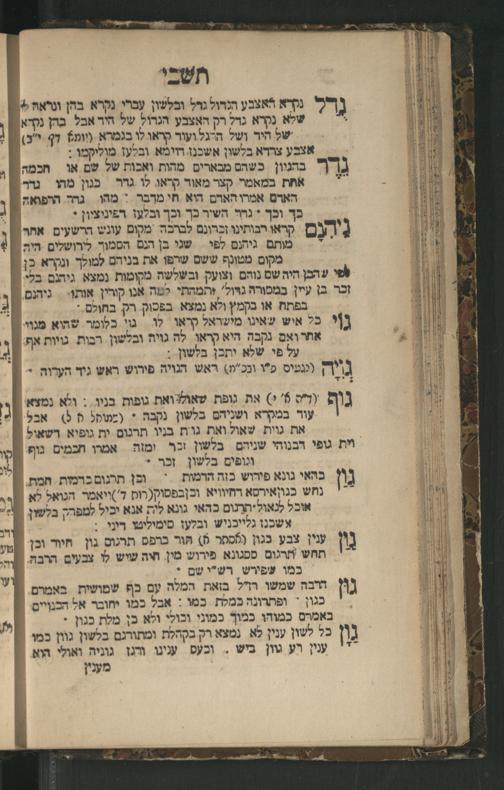 תשבי
גֻּדָל נקרא האצבע הגדול גדל ובלשון עברי נקרא בהן ונראה לי
שלא נקרא גדל רק האצבע הגדול של היד אבל בהן נקרא
של היד ושל הרגל ועוד קראו לו בגמרא (יומא דף י״ב)
אצבע צרדא בלשון אשכנז דוימא ובלעז מוליקמו :
גֶּדֶר בהגיון כשהם מבארים מהות ואכות של שם או חכמה
אחת במאמר קצר מאוד קראו לו גדר כגון מהו גדר
האדם אמרו האדם הוא חי מדבר : מהו גדר הרפואה
כך וכך גדר השיר כך וכך ובלעז דפיניציון
גֵּיהִנָּם קראו רבותינו זכרונם לברכה מקום עונש הרשעים אחר
מותם גיהנם לפי שגי בן הנם הסמוך לירושלים היה
מקום מטונף ששם שרפו את בניהם למולך ונקרא כן
לפי שהבן היה שם נוהם וצועק ובשלשה מקומות נמצא גיהנם בלי
זכר בן עיין במסורה גדול׳ ותמהתי למה אנו קורין אותו גיהנם
בפתח או בקמץ ולא נמצא בפסוק רק בחולם :
גּוֹי כל איש שאינו מישראל קראו לו גוי כלומר שהוא מגוי
אחר ואם נקבה היא קראו לה גויה ובלשון רבות גויות אף
על פי שלא יתכן בלשון :
גְּוִיָּה ראש הגויה פירוש ראש גיד הערוה
גּוּף (ד״ה א׳ י׳) את גופת שאול ואת גופות בניו : ולא נמצא
עוד במקרא ושניהם בלשון נקבה (שמואל א ל) אבל
את גוית שאול ואת גוית בניו תרגום ית גופיא דשאול
וית גופי דבנוהי שניהם בלשון זכר ומזה אמרו חכמים גוף
וגופים בלשון זכר
גּוֹן כהאי גונא פירוש כזה הדמות : וכן תרגום כדמות חמת
נחש כגון אירסא דחיוויא וכן בפסוק (רות ד׳) ויאמר הגואל לא
אוכל לגאול תרגום כהאי גונא לית אנא יכיל למפרק בלשון
אשכנז גלייכניש ובלעז סימיליטו דיני :
גַּוָן ענין צבע כגון (אסתר א) חור כרפס תרגום גון חיור וכן
תחש תרגום ססגונא פירוש מין חיה שיש לו צבעים הרבה
כמו שפירש רש״י שם
גּוֹן הרבה שמשו רז״ל בזאת המלה עם כף שמושית באמרם
כגון ופתרונה כמלת כמו : אבל כמו יחובר אל הכנויים
באמרם כמוהו כמוך כמוני וכולי ולא כן מלת כגון
גַּוָן כל לשון ענין לא נמצא רק בקהלת ומתורגם בלשון גוון כמו
ענין רע גוון ביש . וכעס ענינו ורגז גוניה ואולי הוא
מענין